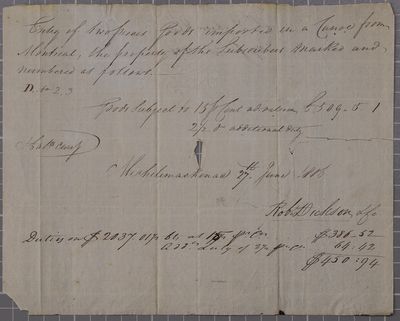 Entry of two pieces Goods imported in a Canoe from
Montreal, the property of the Subscribers Marked and
numbered as follows
D. No 2. 3
Goods Subject to 15 pr Cent ad valorem £509-5-1
2½ do additional duty
Michilimackinac 27th June
Robt Dickson & Co
Duties on $ 2037.01 at pr Ct $386-52
Addl Duty of 2½ pr Ct 64:42
$450:94